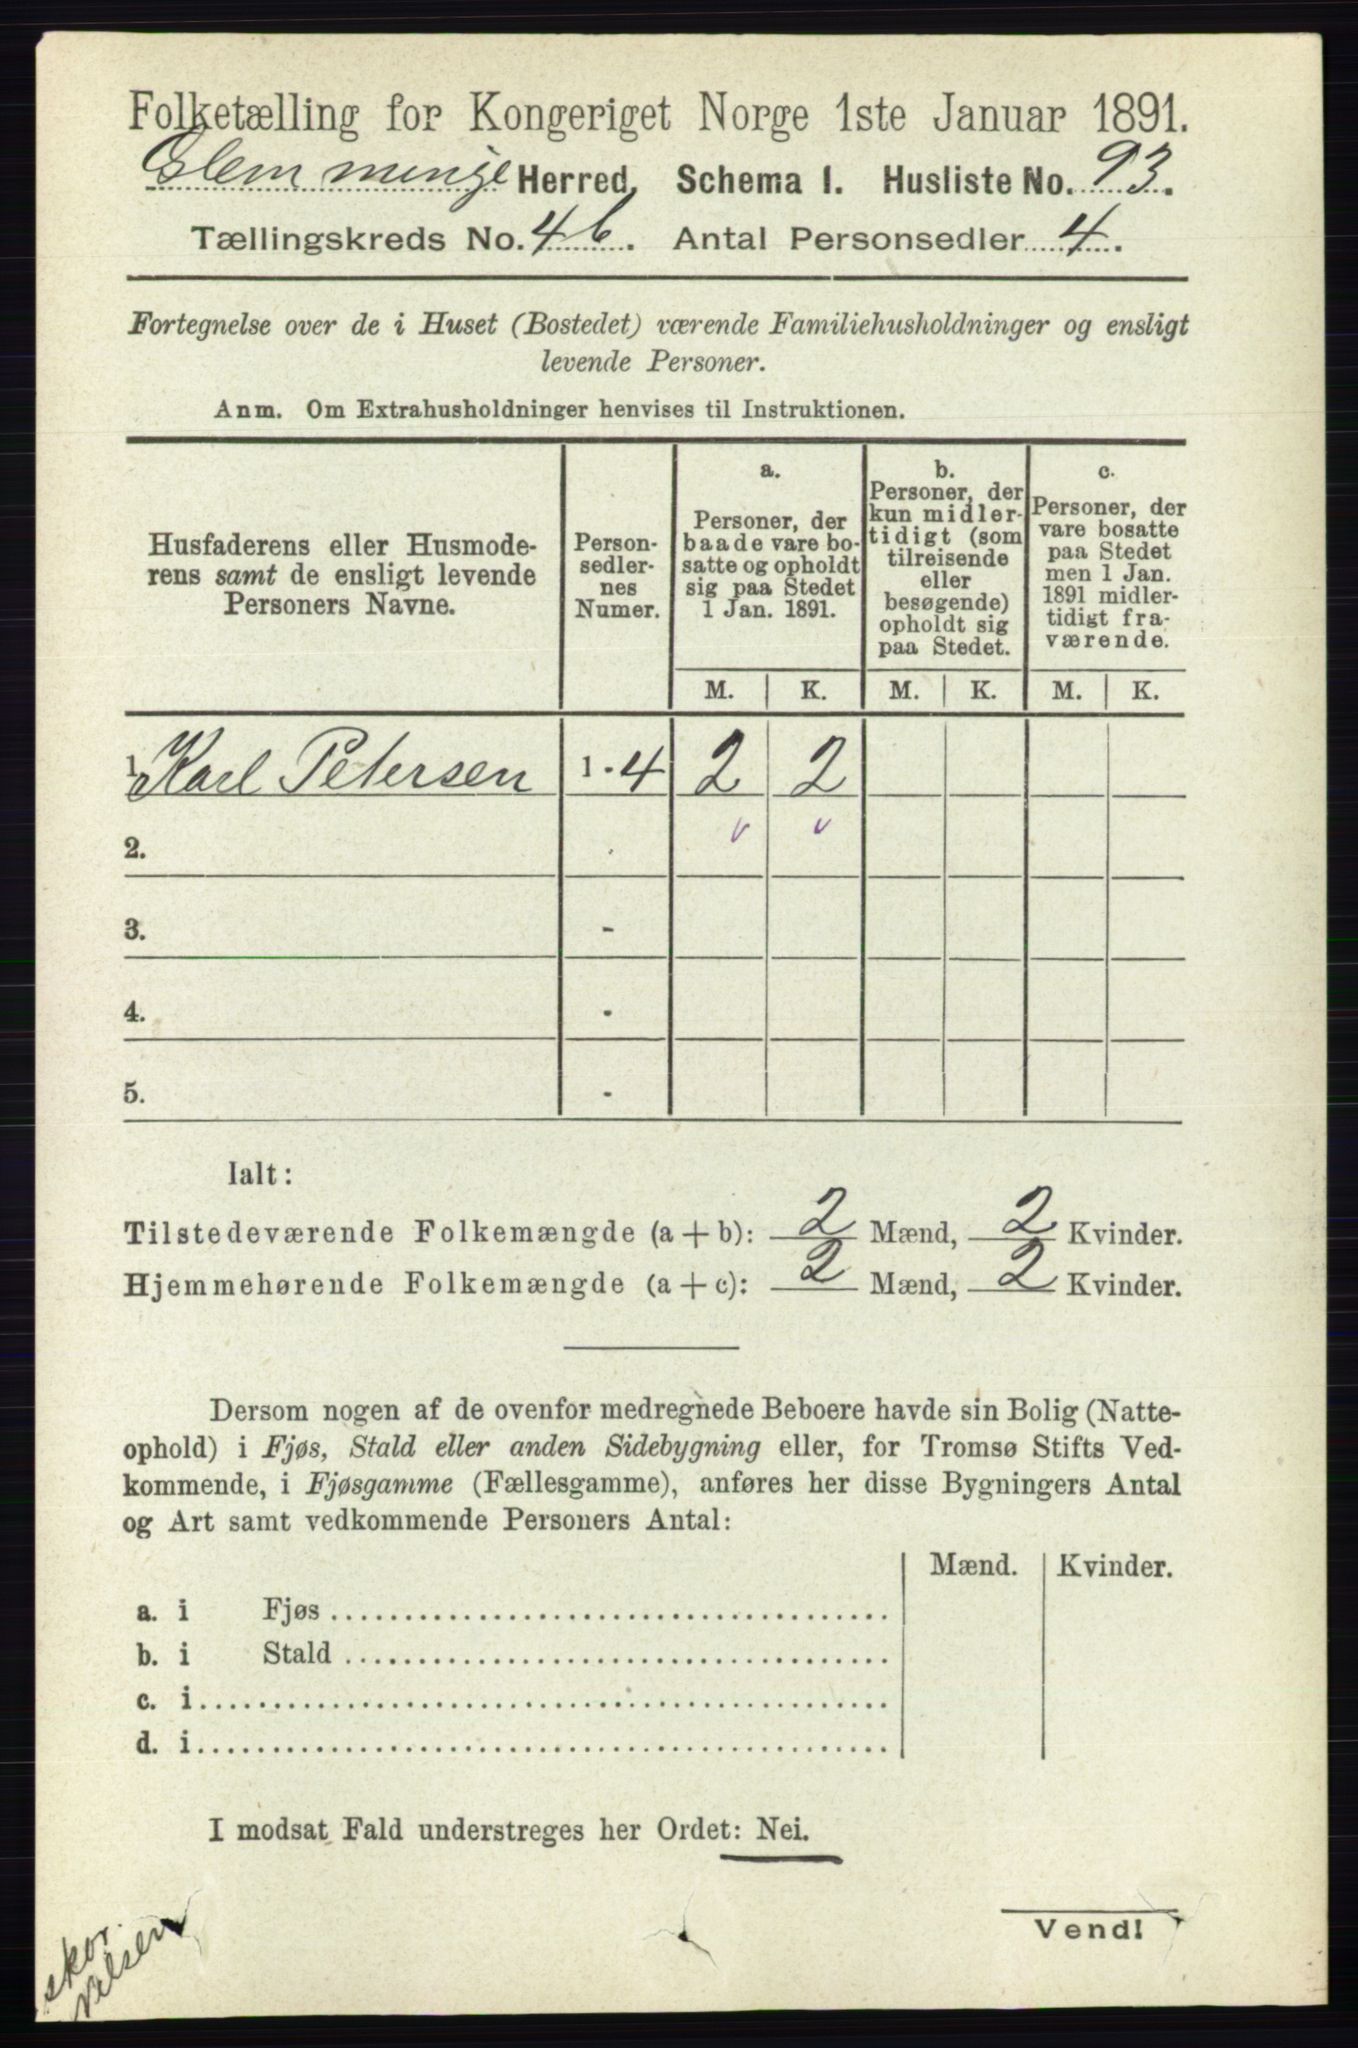 Folketælling for Kongeriget Norge 1ste Januar 1891.
Glemminge Herred, Schema I. Husliste No. 93.
Tællingskreds No. 4b. Antal Personsedler 4.
Fortegnelse over de i Huset (Bostedet) værende Familiehusholdninger og ensligt
levende Personer.
Anm. Om Extrahusholdninger henvises til Instruktionen.
Husfaderens eller Husmode-
rens samt de ensligt levende
Personers Navne.
Person-
sedler-
nes
Numer.
a.
Personer, der
baade vare bo-
satte og opholdt
sig paa Stedet
1 Jan. 1891.
b.
Personer, der
kun midler-
tidigt (som
tilreisende
eller
besøgende)
opholdt sig
paa Stedet.
c.
Personer, der
vare bosatte
paa Stedet
men 1 Jan.
1891 midler-
tidigt fra-
værende.
M. K. M. K. M. K.
1. Karl Petersen 1 - 4 2 2
2.
3. -
4. -
5. -
Ialt:
Tilstedeværende Folkemængde (a + b): 2 Mænd, 2 Kvinder.
Hjemmehørende Folkemængde (a + c): 2 Mænd, 2 Kvinder.
Dersom nogen af de ovenfor medregnede Beboere havde sin Bolig (Natte-
ophold) i Fjøs, Stald eller anden Sidebygning eller, for Tromsø Stifts Ved-
kommende, i Fjøsgamme (Fællesgamme), anføres her disse Bygningers Antal
og Art samt vedkommende Personers Antal:
Mænd. Kvinder.
a. i Fjøs
b. i Stald
c. i
d. i
I modsat Fald understreges her Ordet: Nei.
Vend!